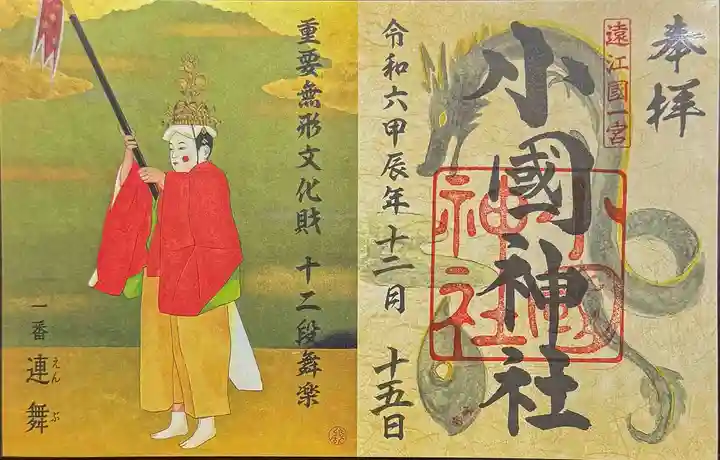 奉拝
遠江國一宮
小國神社
小國神社
令和六甲辰年十二月 十五日
重要無形文化財 十二段舞楽
一番 連舞
えんぶ